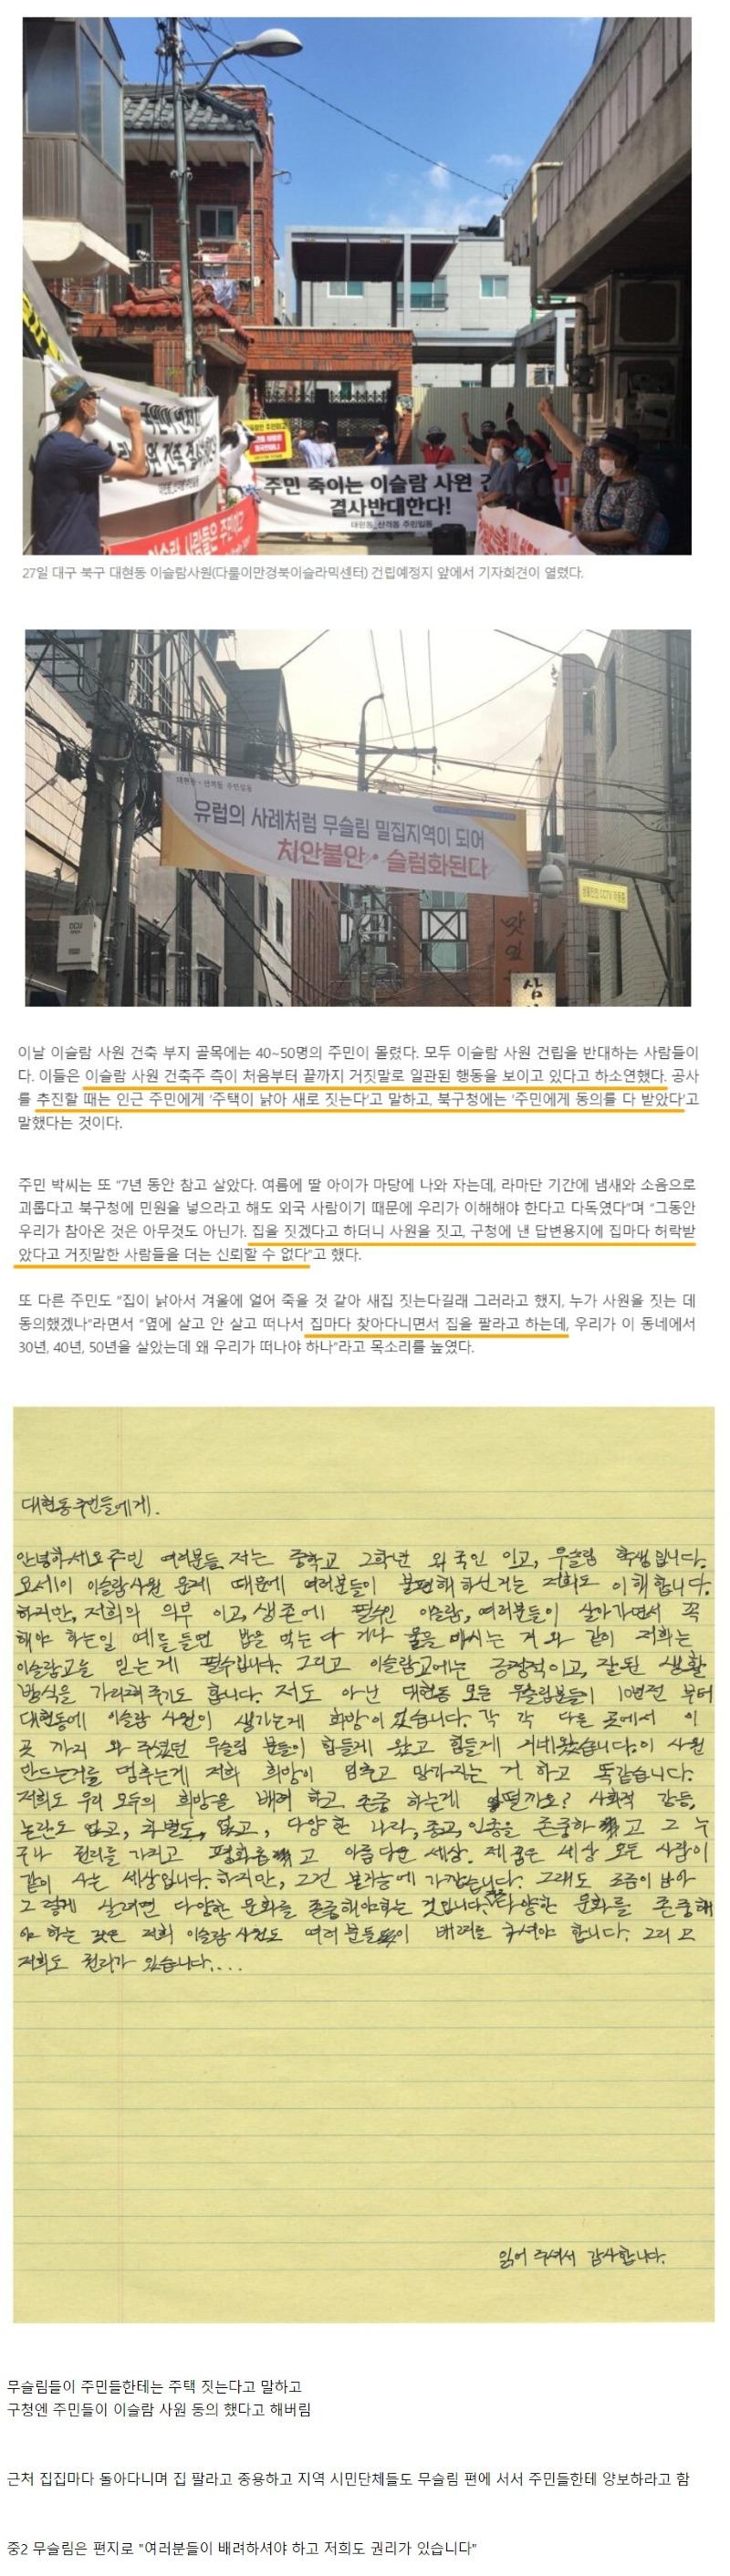 주민 죽이는 이슬람 사원
결사반대한다!
대현동_산격동 주민일동
27일 대구 북구 대현동 이슬람사원(다룰이만경북이슬라믹센터) 건립예정지 앞에서 기자회견이 열렸다.
대현동·산격동 주민일동
유럽의 사례처럼 무슬림 밀집지역이 되어
치안불안·슬럼화된다
이날 이슬람 사원 건축 부지 골목에는 40~50명의 주민이 몰렸다. 모두 이슬람 사원 건립을 반대하는 사람들이
다. 이들은 이슬람 사원 건축주 측이 처음부터 끝까지 거짓말로 일관된 행동을 보이고 있다고 하소연했다. 공사
를 추진할 때는 인근 주민에게 ‘주택이 낡아 새로 짓는다’고 말하고, 북구청에는 ‘주민에게 동의를 다 받았다’고
말했다는 것이다.
주민 박씨는 또 “7년 동안 참고 살았다. 여름에 딸 아이가 마당에 나와 자는데, 라마단 기간에 냄새와 소음으로
괴롭다고 북구청에 민원을 넣으라고 해도 외국 사람이기 때문에 우리가 이해해야 한다고 다독였다”며 “그동안
우리가 참아온 것은 아무것도 아닌가. 집을 짓겠다고 하더니 사원을 짓고, 구청에 낸 답변용지에 집마다 허락받
았다고 거짓말한 사람들을 더는 신뢰할 수 없다”고 했다.
또 다른 주민도 “집이 낡아서 겨울에 얼어 죽을 것 같아 새집 짓는다길래 그러라고 했지, 누가 사원을 짓는 데
동의했겠나”라면서 “옆에 살고 안 살고 떠나서 집마다 찾아다니면서 집을 팔라고 하는데, 우리가 이 동네에서
30년, 40년, 50년을 살았는데 왜 우리가 떠나야 하나”라고 목소리를 높였다.
대현동주민들에게.
안녕하세요 주민 여러분들 저는 중학교 2학년 외국인 이고, 무슬림 학생입니다.
요세이 이슬람사원 문제 때문에 여러분들이 불편해 하신거는 저희도 이해합니다.
하지만, 저희의 의무 이고, 생존에 필수인 이슬람, 여러분들이 살아가면서 꼭
해야 하는일 예를들면 밥을 먹는다 거나 물을 마시는 거 와 같이 저희는
이슬람교를 믿는게 필수입니다. 그리고 이슬람교에는 긍정적이고, 잘된 생활
방식을 가리켜 주기도 합니다. 저도 아닌 대현동 모든 무슬림분들이 10년전 부터
대현동에 이슬람 사원이 생기는게 희망이 있습니다. 각 각 다른 곳에서 이
곳 까지 와 주셨던 무슬림 분들이 힘들게 왔고 힘들게 지내왔습니다. 이 사원
만드는거를 멈추는게 저희 희망이 멈추고 망가지는 거 하고 똑같습니다.
저희도 우리 모두의 희망을 배려 하고 존중 하는게 어떨까요? 사회적 갈등,
논란도 없고, 차별도, 없고, 다양한 나라, 종교, 인종을 존중하고 그 누
구나 권리를 가지고 평화롭고 아름다운 세상. 제 꿈은 세상 모든 사람이
같이 사는 세상입니다. 하지만, 그건 불가능에 가깝습니다. 그래도 조금이 남아
그렇게 살려면 다양한 문화를 존중해야하는 것입니다. 다양한 문화를 존중해
야 하는 것은 저희 이슬람 사원도 여러분들이 배려를 하셔야 합니다. 그리고
저희도 권리가 있습니다....
읽어 주셔서 감사합니다.
무슬림들이 주민들한테는 주택 짓는다고 말하고
구청엔 주민들이 이슬람 사원 동의 했다고 해버림
근처 집집마다 돌아다니며 집 팔라고 종용하고 지역 시민단체들도 무슬림 편에 서서 주민들한테 양보하라고 함
중2 무슬림은 편지로 "여러분들이 배려하셔야 하고 저희도 권리가 있습니다"